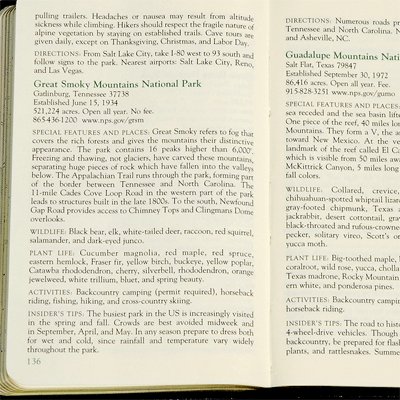 pulling trailers. Headaches or nausea may result from altitude
sickness while climbing. Hikers should respect the fragile nature of
alpine vegetation by staying on established trails. Cave tours are
given daily, except on Thanksgiving, Christmas, and Labor Day.
DIRECTIONS: From Salt Lake City, take I-80 west to 93 south and
follow signs to the park. Nearest airports: Salt Lake City, Reno,
and Las Vegas.
Great Smoky Mountains National Park
Gatlinburg, Tennessee 37738
Established June 15, 1934
521,224 acres. Open all year. No fee.
865-436-1200 www.nps.gov/grsm
SPECIAL FEATURES AND PLACES: Great Smoky refers to fog that
covers the rich forests and gives the mountains their distinctive
appearance. The park contains 16 peaks higher than 6,000'.
Freezing and thawing, not glaciers, have carved these mountains,
separating huge pieces of rock which have fallen into the valleys
below. The Appalachian Trail runs through the park, forming part
of the border between Tennessee and North Carolina. The
11-mile Cades Cove Loop Road in the western part of the park
leads to structures built in the late 1800s. To the south, Newfound
Gap Road provides access to Chimney Tops and Clingmans Dome
overlooks.
WILDLIFE: Black bear, elk, white-tailed deer, raccoon, red squirrel,
salamander, and dark-eyed junco.
PLANT LIFE: Cucumber magnolia, red maple, red spruce,
eastern hemlock, Fraser fir, yellow birch, buckeye, yellow poplar,
Catawba rhododendron, cherry, silverbell, rhododendron, orange
jewelweed, white trillium, bluet, and spring beauty.
ACTIVITIES: Backcountry camping (permit required), horseback
riding, fishing, hiking, and cross-country skiing.
INSIDER'S TIPS: The busiest park in the US is increasingly visited
in the spring and fall. Crowds are best avoided midweek and
in September, April, and May. In any season prepare to dress both
for wet and cold, since rainfall and temperature vary widely
throughout the park.
136
DIRECTIONS: Numerous roads pr
Tennessee and North Carolina. N
and Asheville, NC.
Guadalupe Mountains Nati
Salt Flat, Texas 79847
Established September 30, 1972
86,416 acres. Open all year. Fee.
915-828-3251 www.nps.gov/gumo
SPECIAL FEATURES AND PLACES:
sea receded and the sea basin lifte
One piece of the reef, 40 miles lon
Mountains. They form a V, the a
toward New Mexico. At the ve
landmark of the reef called El C
which is visible from 50 miles awa
McKittrick Canyon, 5 miles long
fall colors.
WILDLIFE: Collared, crevice,
chihuahuan-spotted whiptail lizard
gray-footed chipmunk, Texas a
jackrabbit, desert cottontail, gray
black-throated and rufous-crowne
pecker, solitary vireo, Scott's or
yucca moth.
PLANT LIFE: Big-toothed maple, l
coralroot, wild rose, yucca, cholla
Texas madrone, Rocky Mountain
ern white, and ponderosa pines.
ACTIVITIES: Backcountry campin
horseback riding.
INSIDER'S TIPS: The road to histo
4-wheel-drive vehicles. Though
backcountry, be prepared for flash
plants, and rattlesnakes. Summe